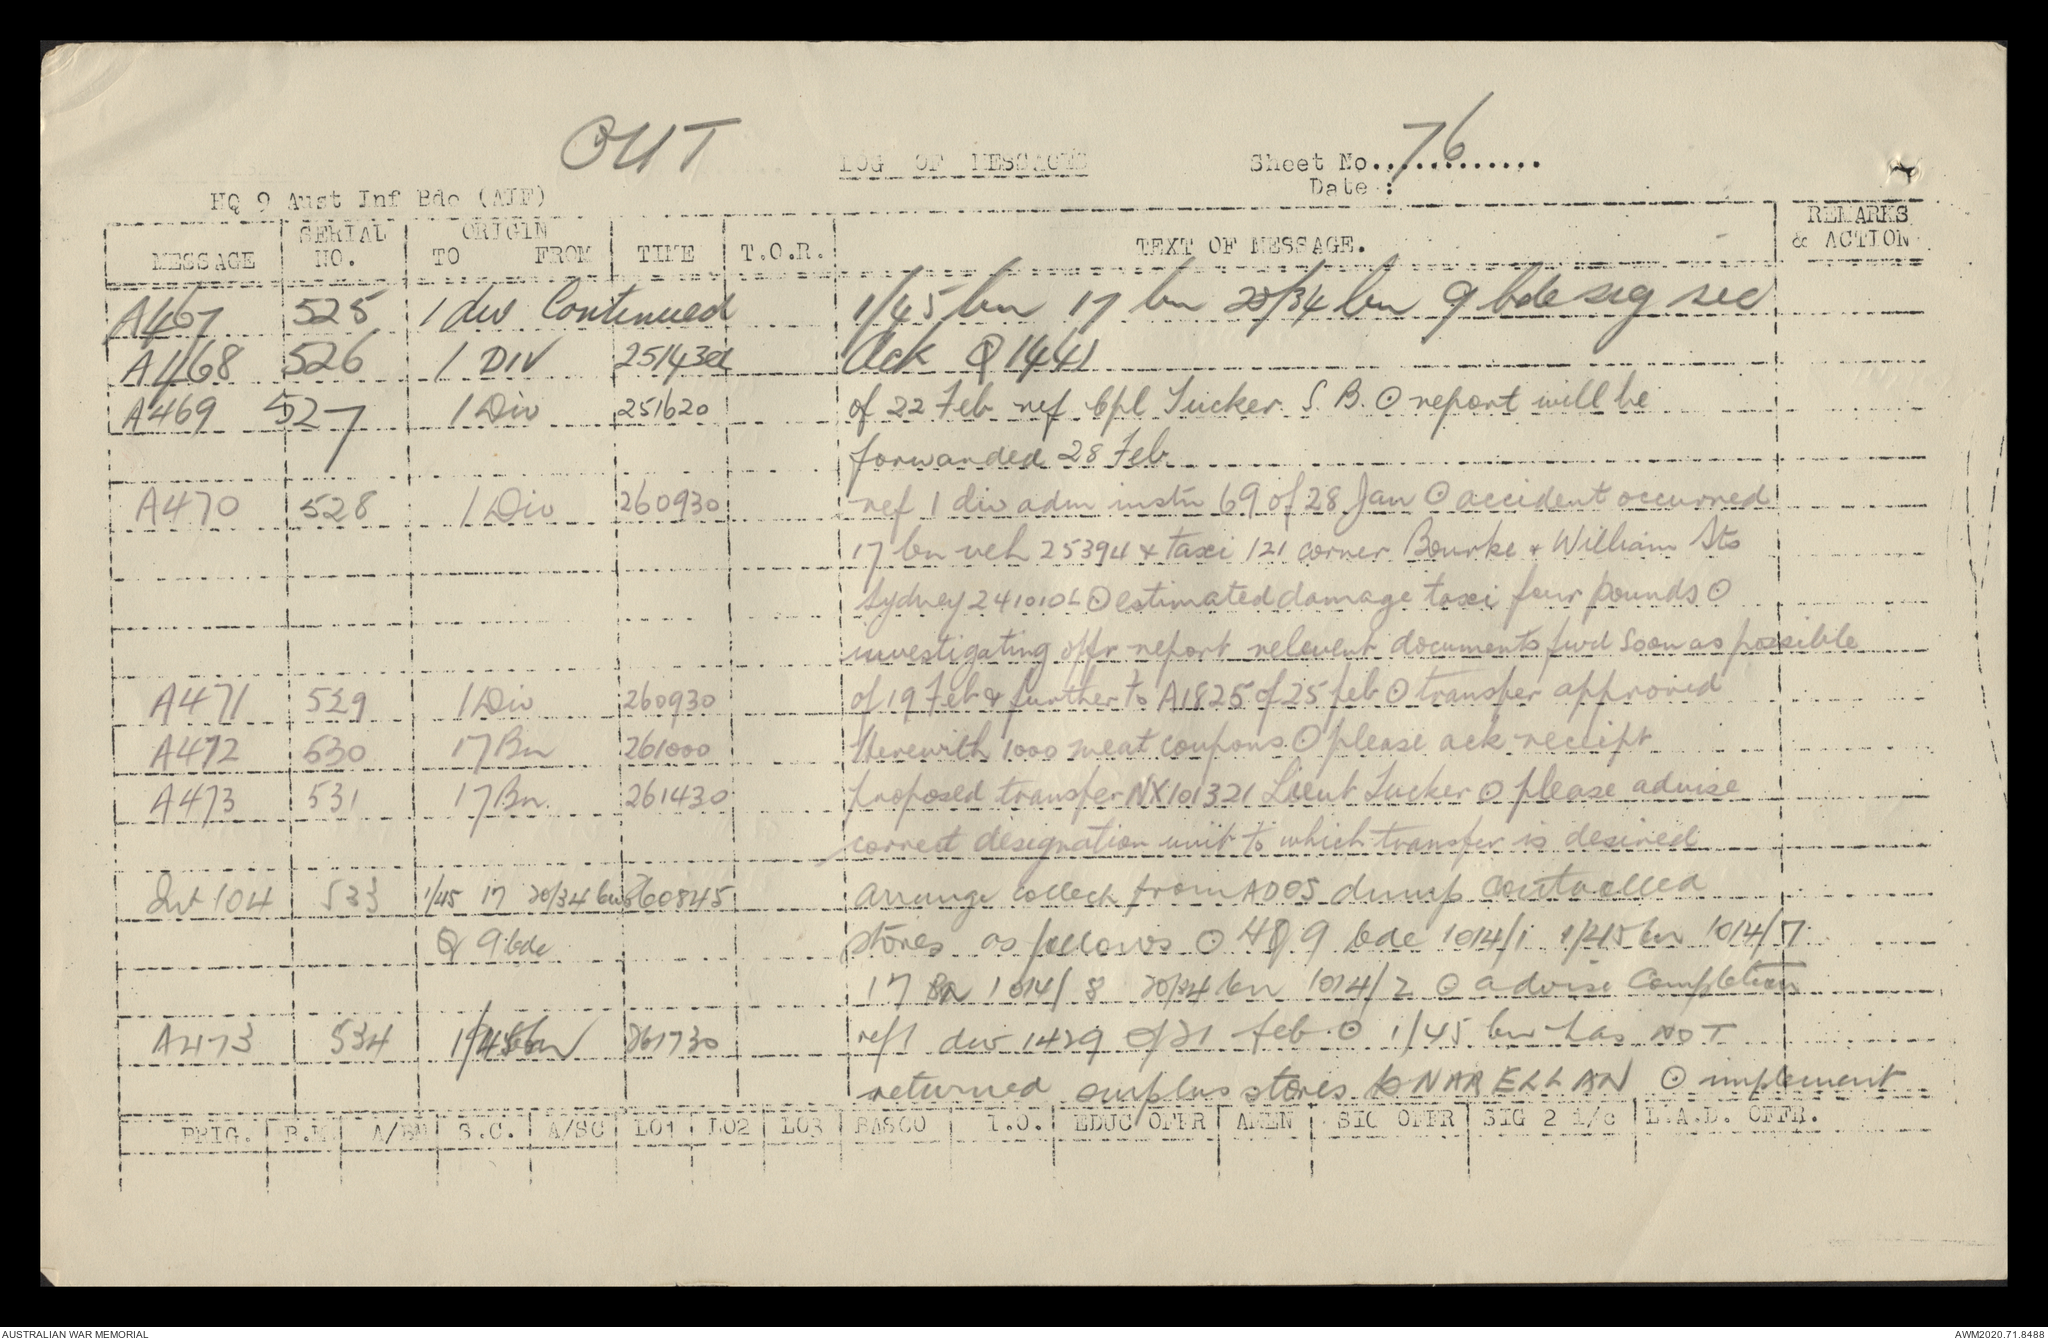 OUT
LOG OF MESSAGES
Sheet No. 76
Date :
HQ 9 Aust Inf Bde (AIF)
MESSAGE SERIAL NO. ORIGIN TO FROM TIME T.O.R. TEXT OF MESSAGE. REMARKS & ACTION
A467 525 1 div Continued 1/45 bn 17 bn 20/34 bn 9 bde sig sec
A468 526 1 DIV 251430 Ack Q1441
A469 527 1 Div 251620 of 22 Feb ref Cpl Tucker S. B. ⊙ report will be
forwanded 28 Feb
A470 528 1 Div 260930 ref 1 div adm instn 69 of 28 Jan ⊙ accident occurred
17 bn veh 25394 & taxi 121 corner Bourke & William Sts
Sydney 241010L ⊙ estimated damage taxi four pounds ⊙
investigating offr report relevent documents fwd soon as possible
A471 529 1 Div 260930 of 19 Feb & further to A1825 of 25 feb ⊙ transfer approved
A472 530 17 Bn 261000 Herewith 1000 meat coupons ⊙ please ack receipt
A473 531 17 Bn. 261430 proposed transfer NX101321 Lieut Tucker ⊙ please advise
correct designation unit to which transfer is desired
Int 104 533 1/45 17 20/34 bns 260845 Arrange collect from ADOS dump controlled
Q 9 bde stores as follows ⊙ HQ 9 bde 1014/1 1/45 bn 1014/7
17 Bn 1014/8 20/34 bn 1014/2 ⊙ advise Completion
A473 534 1/45 bn 261730 ref 1 div 1429 of 21 feb ⊙ 1/45 bn has NOT
returned surplus stores to NARELLAN ⊙ implement
BRIG. B.M. A/BM S.C. A/SC LO1 LO2 LO3 BASCO I.O. EDUC OFFR AMEN SIG OFFR SIG 2 i/c L.A.D. OFFR.
AUSTRALIAN WAR MEMORIAL
AWM2020.71.8488